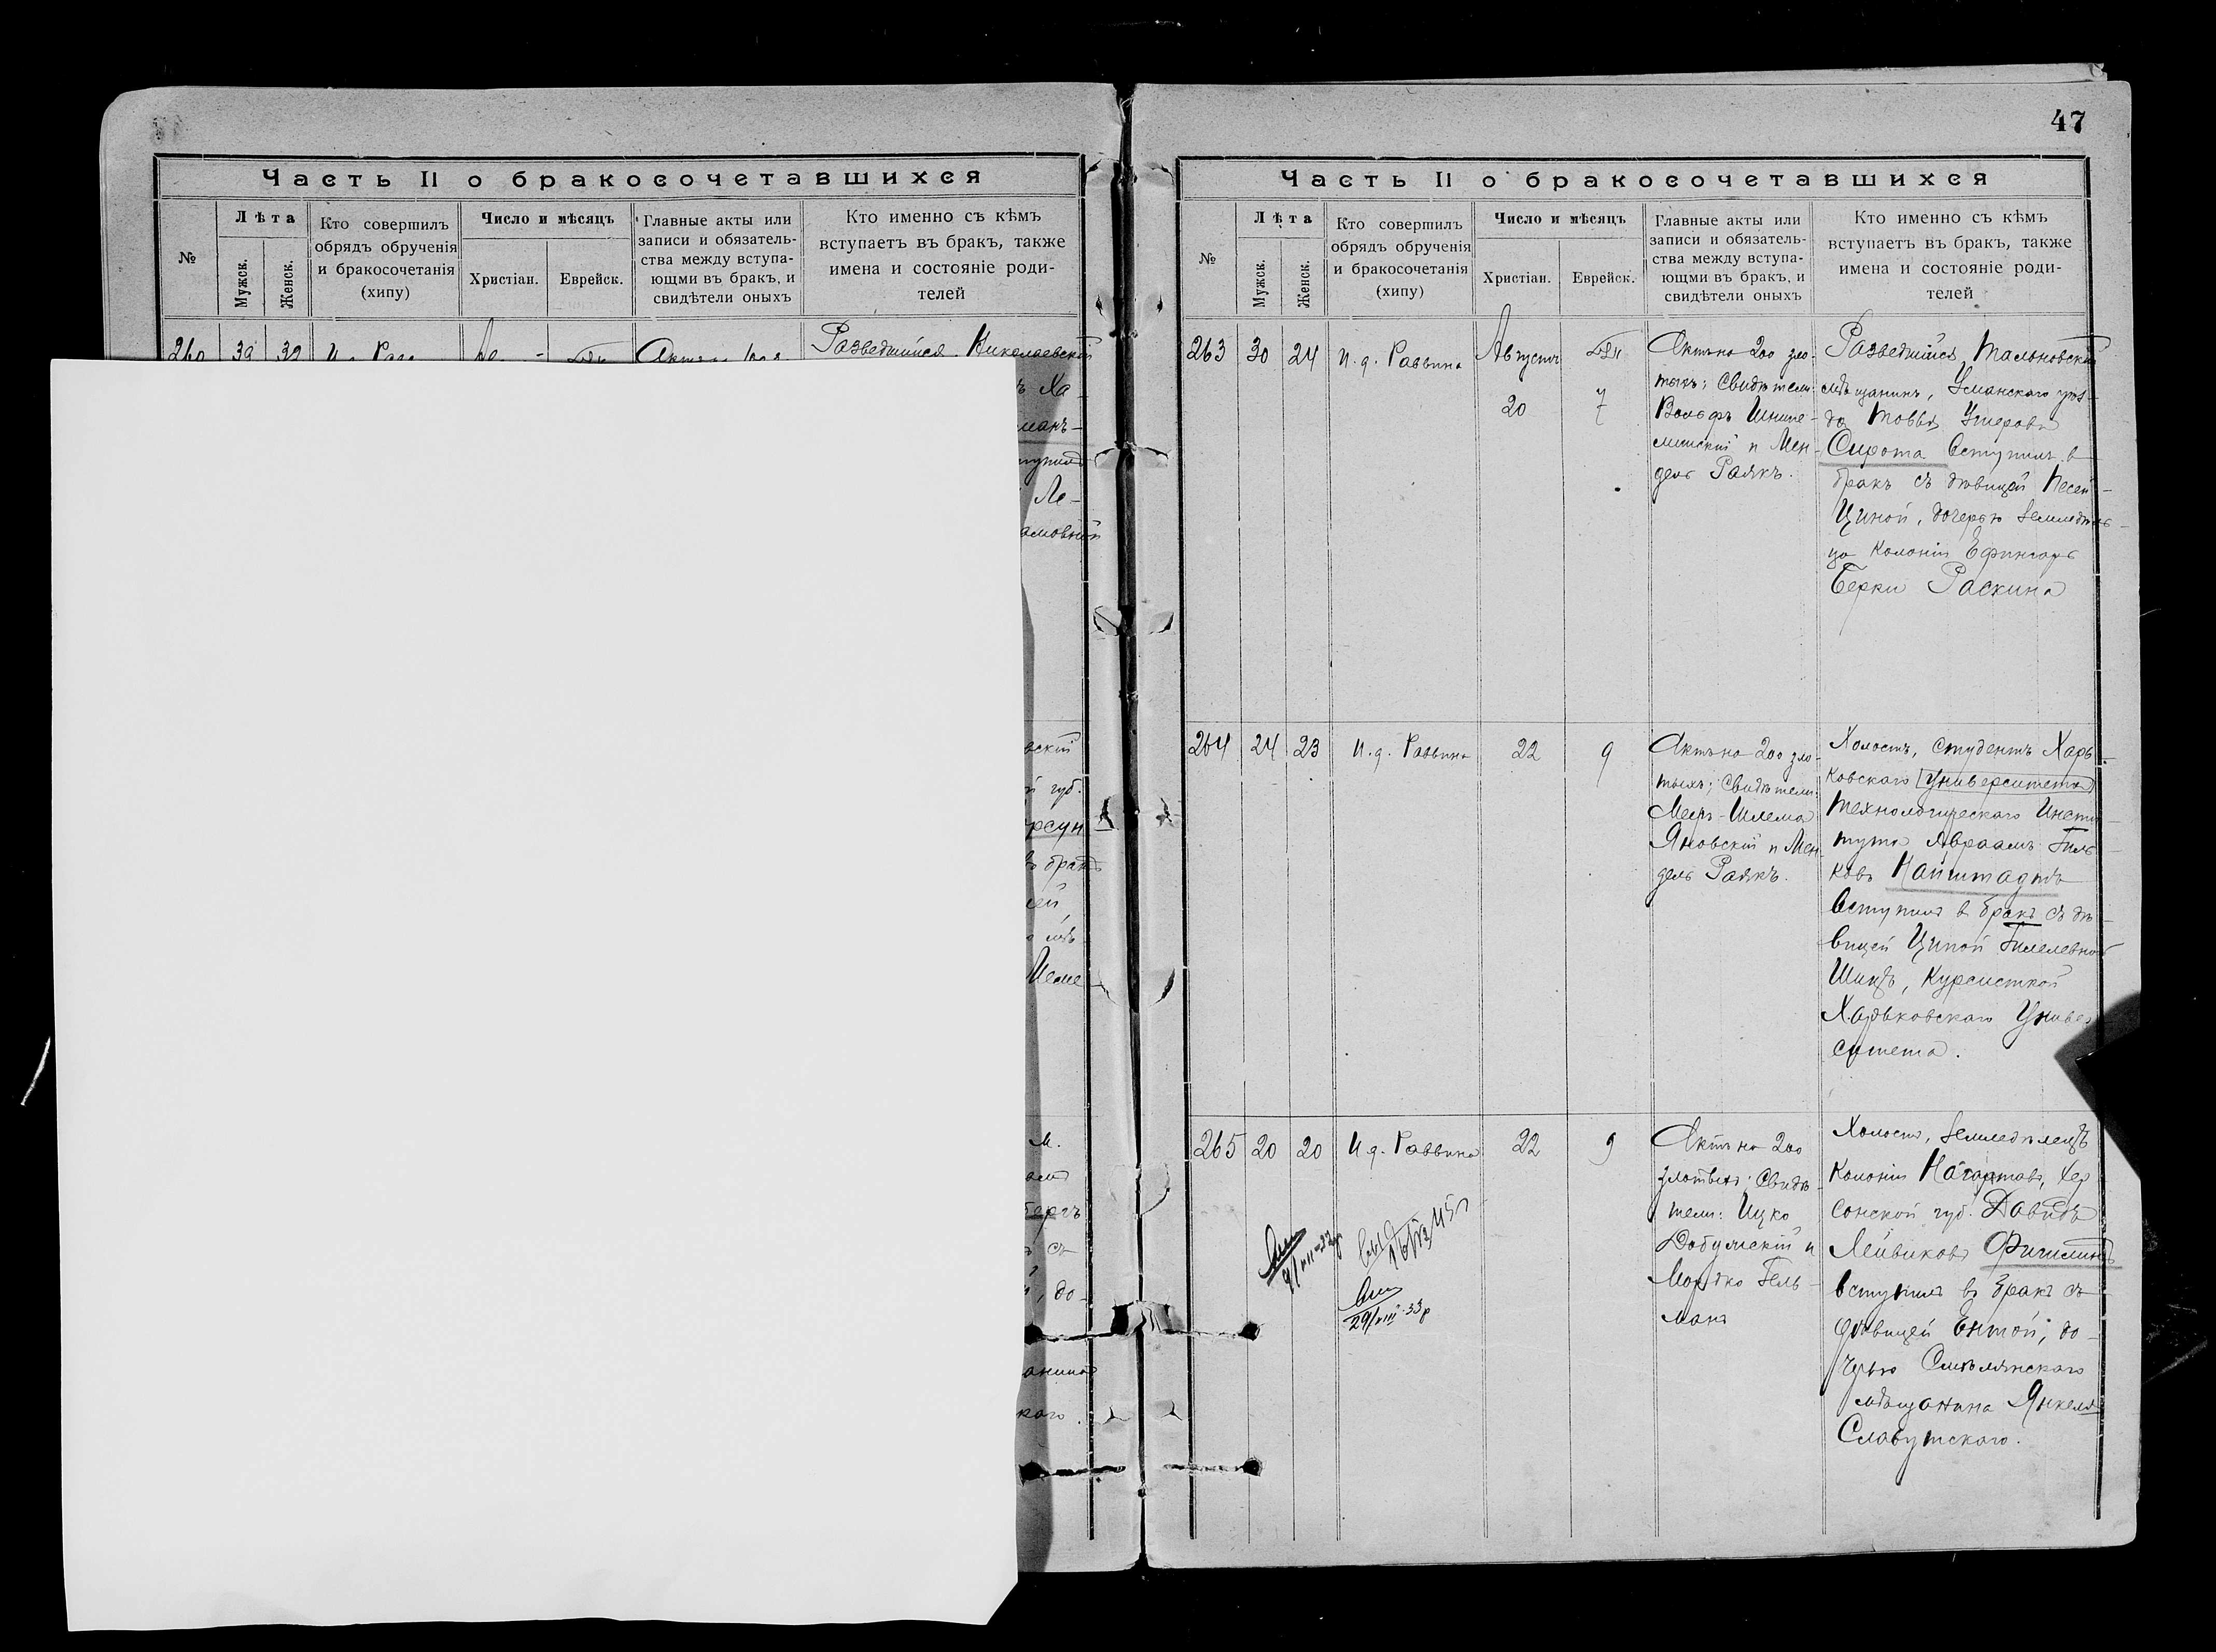 Часть II о бракосочетавшихся
№
Лѣта
Мужск.
Женск.
Кто совершилъ
обрядъ обрученія
и бракосочетанія
(хипу)
Число и мѣсяцъ
Христіан.
Еврейск.
Главные акты или
записи и обязатель-
ства между вступа-
ющми въ бракъ, и
свидѣтели оныхъ
Кто именно съ кѣмъ
вступаетъ въ бракъ, также
имена и состояніе роди-
телей
260
39
Разведшійся Николаевскій
Ха-
Ле-
губ.
М.
, до-
47
Часть II о бракосочетавшихся
№
Лѣта
Мужск.
Женск.
Кто совершилъ
обрядъ обрученія
и бракосочетанія
(хипу)
Число и мѣсяцъ
Христіан.
Еврейск.
Главные акты или
записи и обязатель-
ства между вступа-
ющми въ бракъ, и
свидѣтели оныхъ
Кто именно съ кѣмъ
вступаетъ въ бракъ, также
имена и состояніе роди-
телей
263
30
24
И. д. Раввина
Августъ
20
אלול
7
Актъ на 200 зло-
тыхъ; Свидѣтели:
Вольфъ
и Мен-
дель Раякъ.
Разведшійся Тальновскій
мѣщанинъ, Уманскаго уѣз-
да Товія Ушеровъ
Сирота вступилъ в
бракъ съ дѣвицей Песей-
Циной, дочерью земледѣль-
ца колоніи Ефингаръ
Берки Раскина
264
24
23
И. д. Раввина
22
9
Актъ на 200 зло-
тыхъ; Свидѣтели:
Мееръ-Шлема
Яновскій и Мен-
дель Раякъ.
Холостъ, студентъ Харь-
ковскаго [Университета]
Технологическаго Инсти-
тута Авраамъ Гиль-
ковъ Найштадтъ
вступилъ в бракъ съ дѣ-
вицей Ципой Гилелевной
Шицъ, Курсисткой
Харьковскаго Универ-
ситета.
265
20
20
И. д. Раввина
22
9
Актъ на 200
злотыхъ; Свидѣ-
тели: Ицко
Добужскій и
Мордко Гель-
манъ
29/VIII-33р
Холостъ, земледѣлецъ
Колоніи Нагартавъ, Хер-
сонской губ. Давидъ
Лейвиковъ Фишлинъ
вступилъ въ бракъ съ
дѣвицей Ентой, до-
черью Смѣлянскаго
мѣщанина Янкеля
Славутскаго.